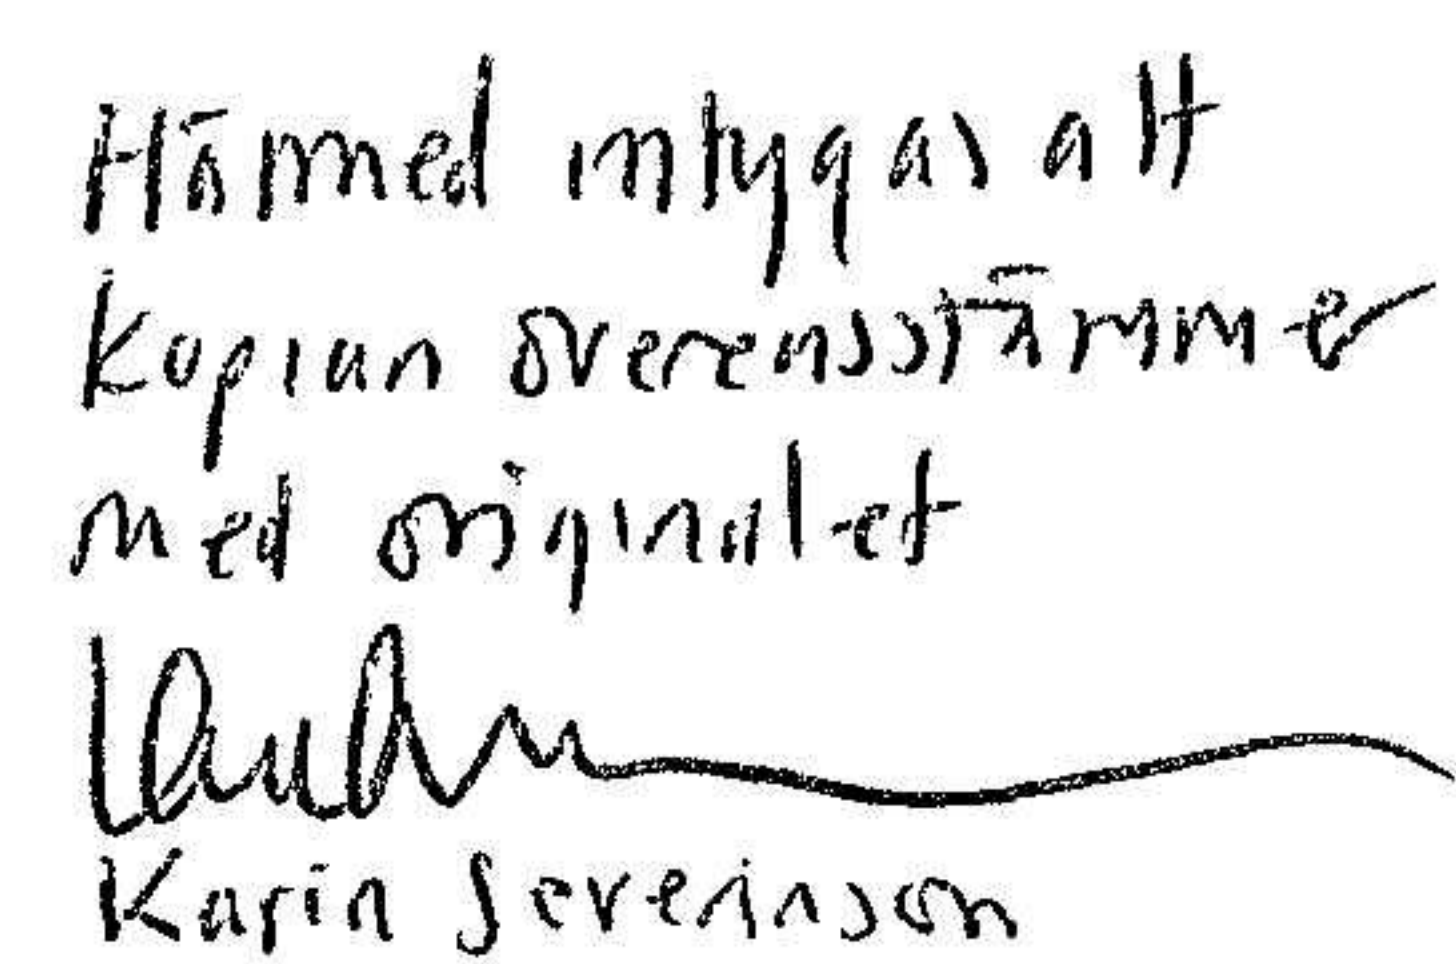 Härmed intygas att
Kopian överensstämmer
med originalet
Karin Severinson